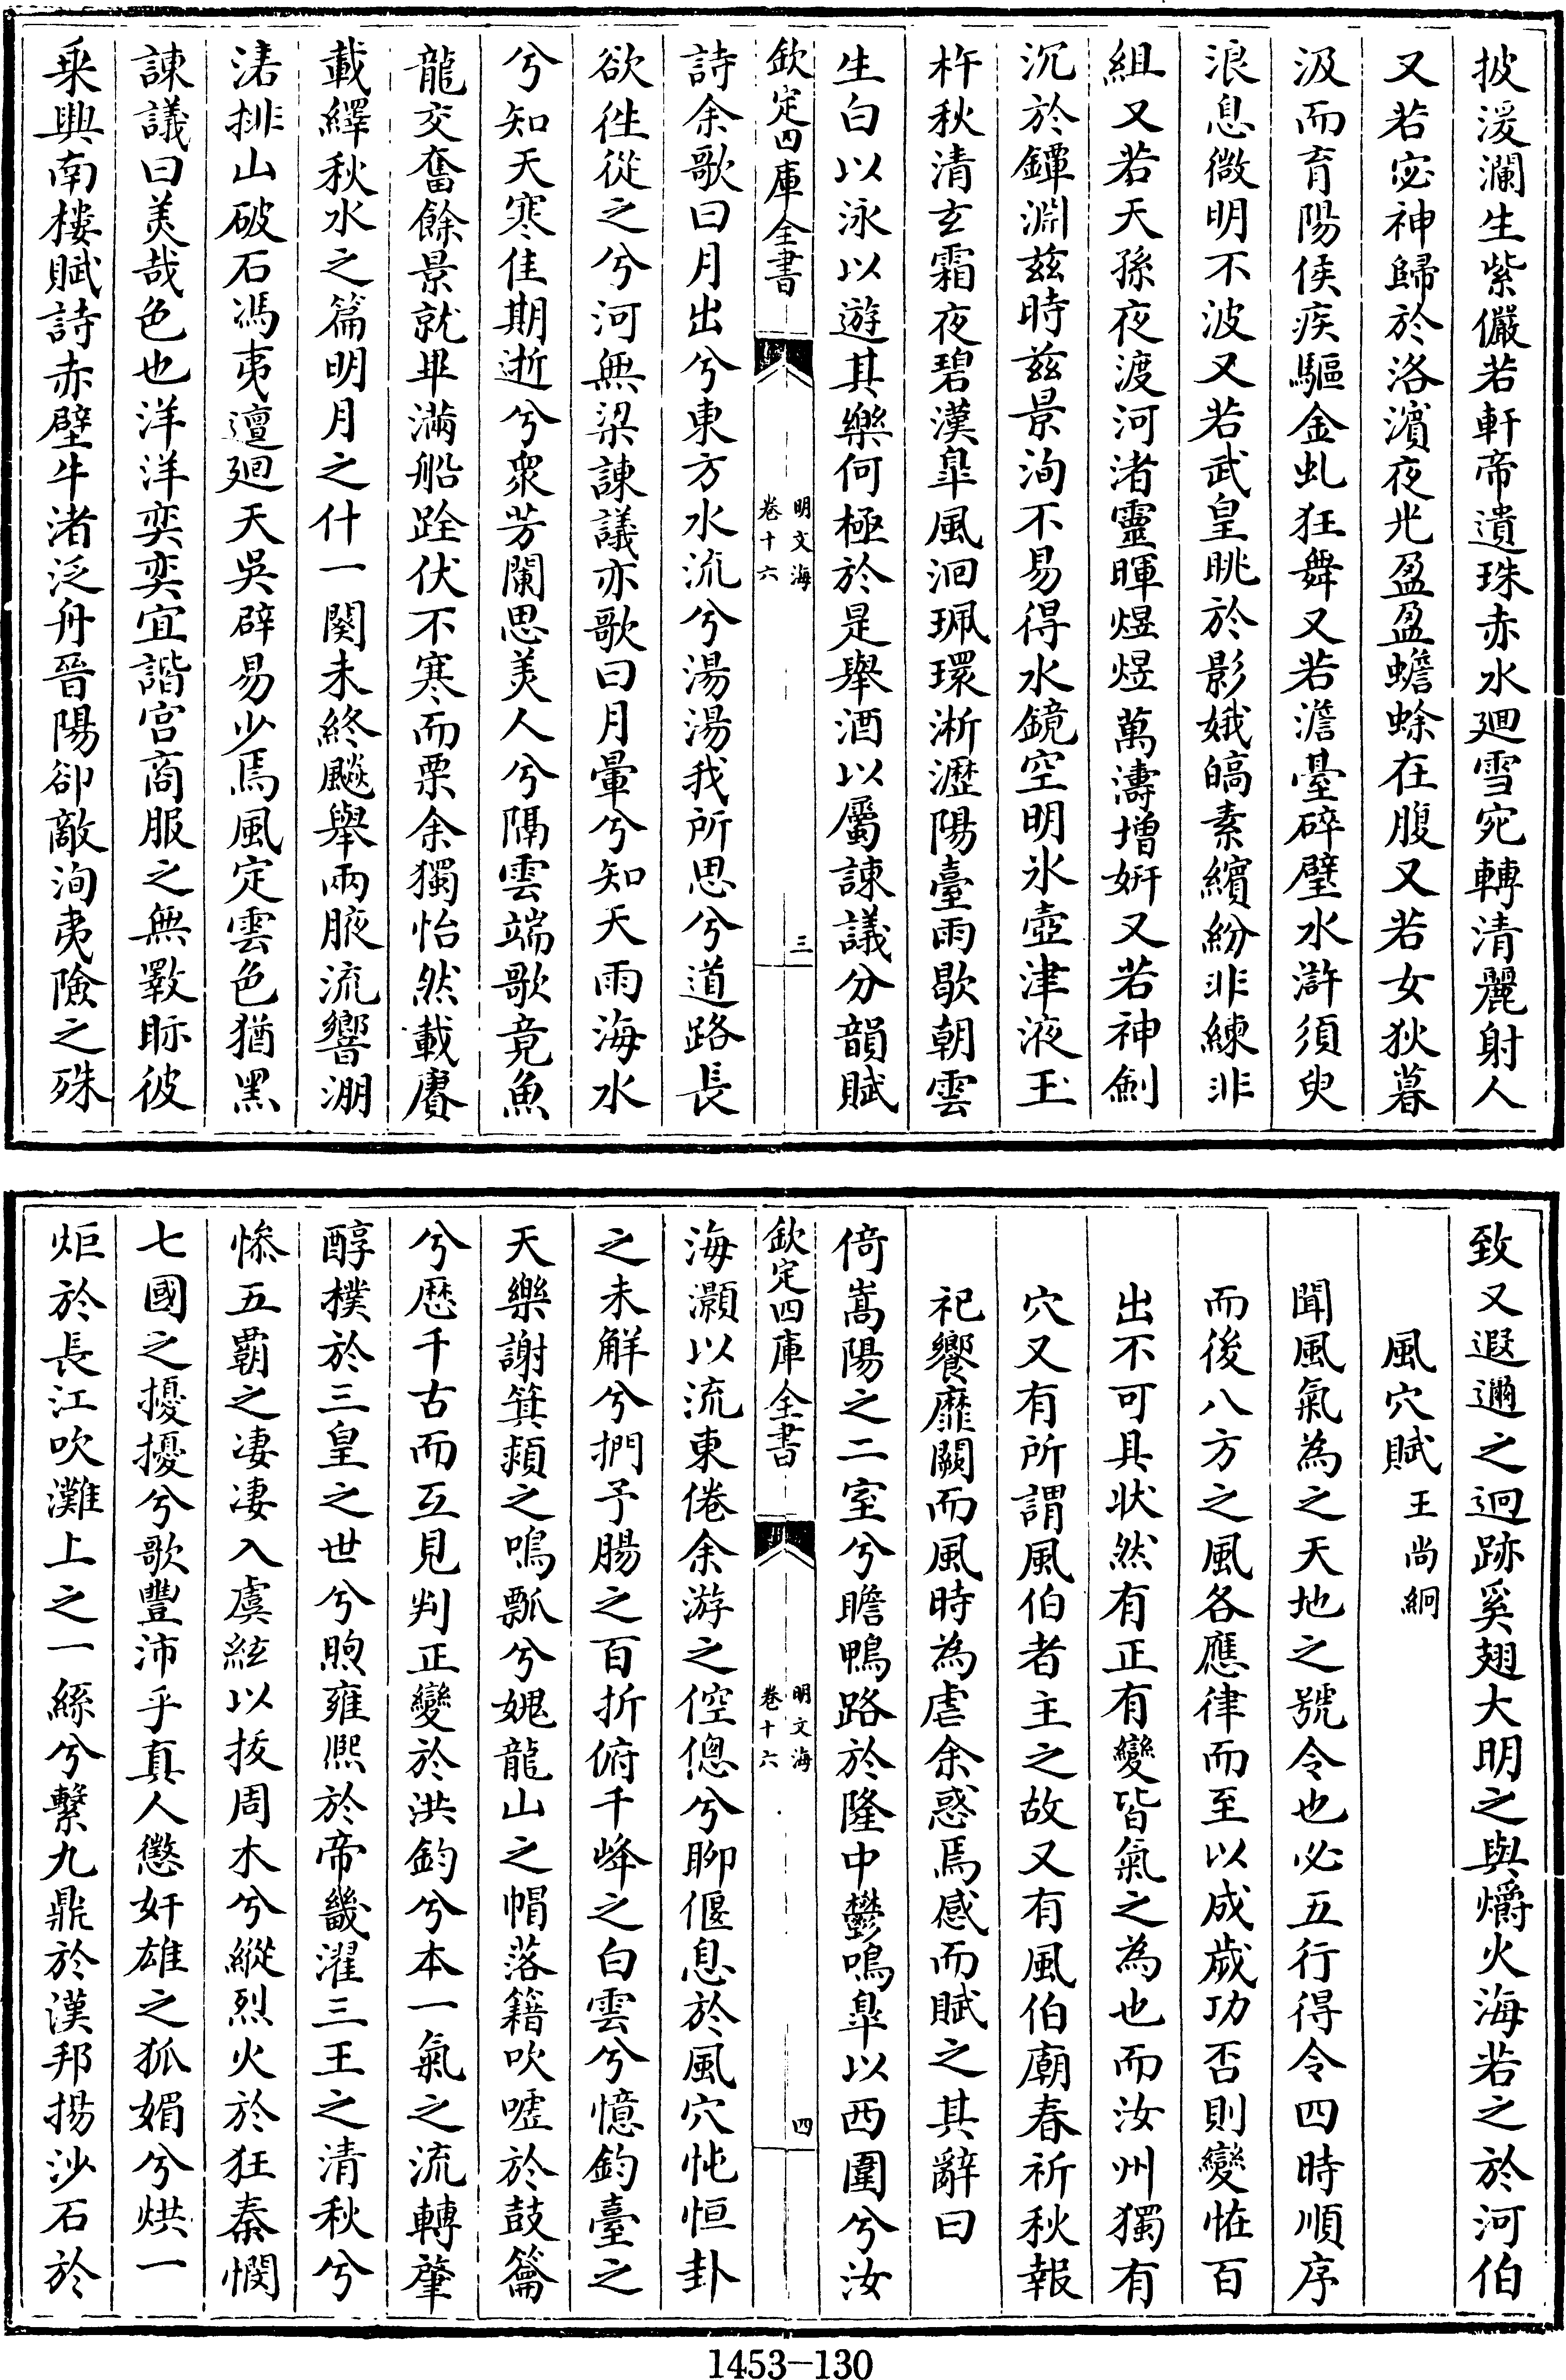 披湲瀾生紫儼若軒帝遺珠赤水廻雪宛轉清麗射人
又若宓神歸於洛濵夜光盈盈蟾蜍在腹又若女狄暮
汲而育陽侯疾驅金虬狂舞又若澹臺碎璧水滸須臾
浪息微明不波又若武皇眺於影娥皜素繽紛非練非
組又若天孫夜渡河渚靈暉煜煜萬濤增妍又若神劍
沉於鐔淵兹時兹景洵不易得水鏡空明氷壺津液玉
杵秋清玄霜夜碧漢臯風洄珮環淅瀝陽臺雨歇朝雲
生白以泳以遊其樂何極於是舉酒以屬諫議分韻賦
欽定四庫全書
明文海
卷十六
三
詩余歌曰月出兮東方水流兮湯湯我所思兮道路長
欲徃從之兮河無梁諫議亦歌曰月暈兮知天雨海水
兮知天寒佳期逝兮衆芳闌思美人兮隔雲端歌竟魚
龍交奮餘景就畢滿船跧伏不寒而栗余獨怡然載賡
載繹秋水之篇明月之什一闋未終飈舉兩腋流響淜
渃排山破石馮夷邅廻天吳辟易少焉風定雲色猶黑
諫議曰美哉色也洋洋奕奕宜諧宫商服之無斁眎彼
乗興南樓賦詩赤壁牛渚泛舟晉陽卻敵洵夷險之殊
致又遐邇之迥跡奚翅大明之與爝火海若之於河伯
風穴賦 王尚絅
聞風氣為之天地之號令也必五行得令四時順序
而後八方之風各應律而至以成歲功否則變恠百
出不可具狀然有正有變皆氣之為也而汝州獨有
穴又有所謂風伯者主之故又有風伯廟春祈秋報
祀饗靡闕而風時為虐余惑焉感而賦之其辭曰
倚嵩陽之二室兮瞻鴨路於隆中鬱鳴臯以西圍兮汝
欽定四庫全書
明文海
卷十六
四
海灝以流東倦余游之倥傯兮聊偃息於風穴忳恒卦
之未解兮捫予腸之百折俯千峰之白雲兮憶鈞臺之
天樂謝箕熲之鳴瓢兮媿龍山之帽落籍吹噓於鼓籥
兮歴千古而互見判正變於洪鈞兮本一氣之流轉肇
醇樸於三皇之世兮煦雍熙於帝畿濯三王之清秋兮
慘五覇之凄凄入虞絃以抜周木兮縱烈火於狂秦憫
七國之擾擾兮歌豐沛乎真人懲奸雄之狐媚兮烘一
炬於長江吹灘上之一絲兮繫九鼎於漢邦揚沙石於
1453-130